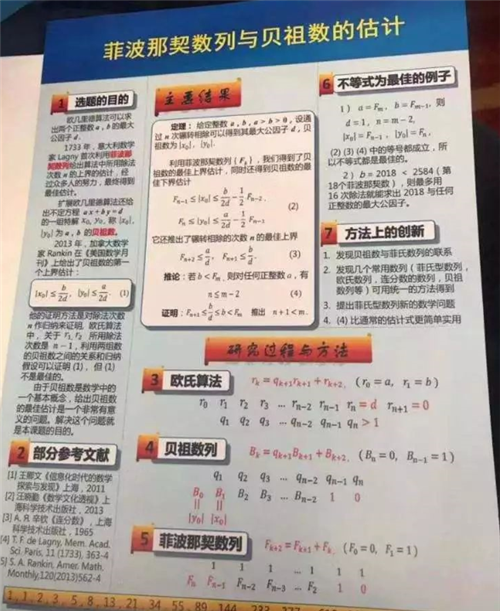 菲波那契数列与贝祖数的估计
1 选题的目的
欧几里德算法可以求
出两个正整数 a, b 的最大
公因子 d。
1733 年,意大利数学
家 Lagny 首次利用菲波那
契数列给出算法中所用除法
次数 n 的上界的估计,经
过众多人的努力,最终得到
最佳估计。
扩展欧几里德算法还给
出不定方程 ax + by = d
的一组特解 x₀, y₀, 称 |x₀|,
|y₀| 为 a, b 的贝祖数。
2013 年,加拿大数学
家 Rankin 在《美国数学月
刊》上给出了贝祖数的第一
个上界估计:
|x₀| ≤ b/2d, |y₀| ≤ a/2d (1)
他的证明方法是对除法次数
n 作归纳来证明, 欧氏算法
中, 关于 r₁, r₂ 所用除法
次数是 n − 1, 利用两组数
的贝祖数之间的关系和归纳
假设可以证明 (1), 但 (1)
不是最佳的。
由于贝祖数是数学中的
一个基本概念,给出贝祖数
的最佳估计是一个非常有意
义的问题。解决这个问题就
是本课题的目的。
2 部分参考文献
[1] 王卿文《信息化时代的数学
探索与发现》上海, 2011
[2] 汪晓勤《数学文化透视》上
海科学技术出版社, 2013
[3] A. Я. 辛钦《连分数》, 上海
科学技术出版社, 1965
[4] T. F. de Lagny, Mem. Acad.
Sci. Paris, 11 (1733), 363-4
[5] S. A. Rankin, Amer. Math.
Monthly,120(2013)562-4
主要结果
定理:给定整数 a, b, a > b > 0, 设通
过 n 次辗转相除可以得到其最大公因子 d, 贝
祖数为 |x₀|, |y₀|,
利用菲波那契数列 { Fₖ }, 我们得到了贝
祖数的最佳上界估计,同时还得到贝祖数的最
佳下界估计
Fₙ₋₁ ≤ |x₀| ≤ b/2d − 1/2 Fₙ₋₂,
(2)
Fₙ ≤ |y₀| ≤ a/2d − 1/2 Fₙ₋₁.
它还推出了辗转相除的次数 n 的最佳上界
Fₙ₊₂ ≤ a/d, Fₙ₊₁ ≤ b/d. (3)
推论:若 b < Fₘ, 则对任何正整数 a, 有
n ≤ m − 2 (4)
证明:Fₙ₊₁ ≤ b/d ≤ b < Fₘ 推出 n + 1 < m.
6 不等式为最佳的例子
1) a = Fₘ, b = Fₘ₋₁, 则
d = 1, n = m − 2,
|x₀| = Fₙ₋₁, |y₀| = Fₙ.
(2) (3) (4) 中的等号都成立,所
以不等式都是最佳的。
2) b = 2018 < 2584 ( 第
18个菲波那契数 ), 则最多用
16 次除法就能求出 2018 与任何
正整数的最大公因子。
7 方法上的创新
1. 发现贝祖数与菲氏数列的联系
2. 发现几个常用数列 ( 菲氏型数列,
欧氏数列, 连分数的数列, 贝祖
数列等 ) 可用统一的方法得到
3. 提出菲氏型数列新的数学问题
4. (4) 比通常的估计式更简单实用
研究过程与方法
3 欧氏算法 rₖ = qₖ₊₁rₖ₊₁ + rₖ₊₂, (r₀ = a, r₁ = b)
r₀ r₁ r₂ r₃ ... rₙ₋₂ rₙ₋₁ rₙ = d rₙ₊₁ = 0
q₁ q₂ q₃ ... qₙ₋₂ qₙ₋₁ qₙ > 1
4 贝祖数列 Bₖ = qₖ₊₁Bₖ₊₁ + Bₖ₊₂, (Bₙ = 0, Bₙ₋₁ = 1)
q₁ q₂ q₃ ... qₙ₋₂ qₙ₋₁ qₙ
B₀ B₁ B₂ B₃ ... Bₙ₋₂ 1 0
|y₀| |x₀|
5 菲波那契数列 Fₖ₊₂ = Fₖ₊₁ + Fₖ (F₀ = 0, F₁ = 1)
1 1 1 ... 1 1 1
Fₙ Fₙ₋₁ Fₙ₋₂ Fₙ₋₃ ... F₂ 1 0
1, 1, 2, 3, 5, 8, 13, 21, 34, 55, 89, 144, 233,